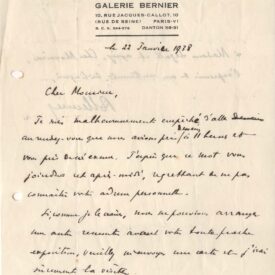 GALERIE BERNIER
10, RUE JACQUES-CALLOT, 10
(RUE DE SEINE) PARIS-VI
DANTON
le 22 Janvier 1938
Cher Monsieur,
Je suis malheureusement empêché d'aller
au rendez-vous que nous avions pris demain à 11 heures et
vous prie de m'excuser. J'espère que ce mot vous
joindra cet après-midi, regrettant de ne pas
connaître votre adresse personnelle.
Si, comme je le crois, nous ne pouvions arranger
une autre rencontre avant votre toute proche
exposition, veuillez m'envoyer une carte et j'irai
sûrement la visiter